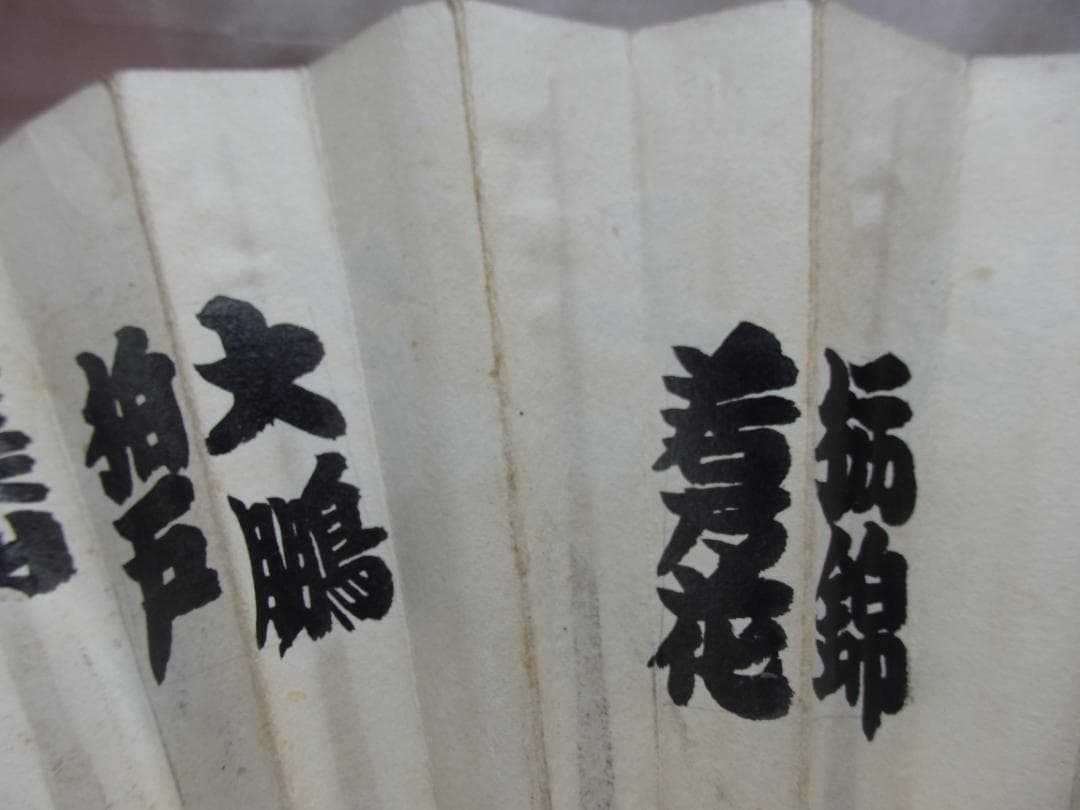 栃錦
若乃花
大鵬
柏戸